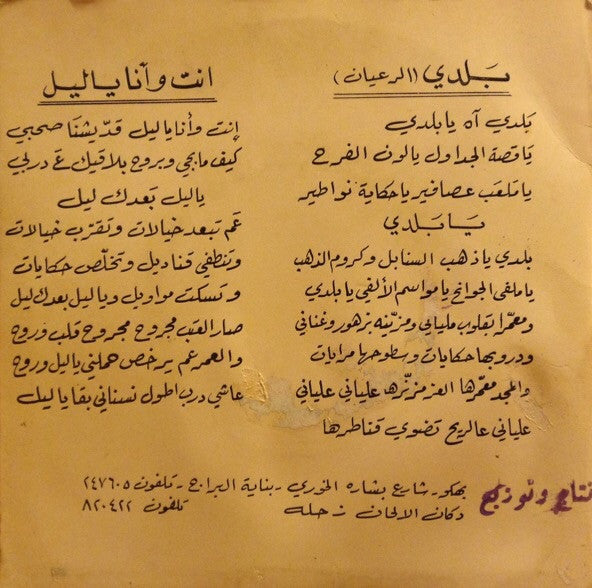 بَلدي (الرعيان)
بَلدي آه يا بلدي
يا قصة الجداول يا لون الفرح
يا ملعب عصافير يا حكاية نواطير
يـــا بَـلـدي
بلدي يا ذهب السنابل وكروم الذهب
يا ملفى الجوانح يا مواسم الألفي يا بلدي
ومعمّرا بقلوب مليانِ ومزيّنه زهور وغناني
ودروبها حكايات وسطوحها مرايات
والمجد معمّرها العز مزنّرها عليانِ عليانِ
عليانِ عالريح تضوي قناطرها
انت وأنا يا ليل
إنت وأنا يا ليل قدّيشنا صحبي
كيف ما بجي وبروح بلاقيك عَ دربي
يا ليل بَعدك ليل
عَم تبعد خيالات وتقرّب خيالات
وتنطفي قناديل وتخلّص حكايات
وتسكت مواويل ويا ليل بعدك ليل
صار القلب مجروح مجروح قلب وروح
والعمر عم يرخص حملني يا ليل وروح
عاشي درب اطول نسناني بقا يا ليل
نتاج وتوزيع
بهكو - شارع بشاره الخوري - بناية البراج - تلفون ٢٤٧٦٠٥
دكان الالحان زحله تلفون ٨٢٠٤٢٢